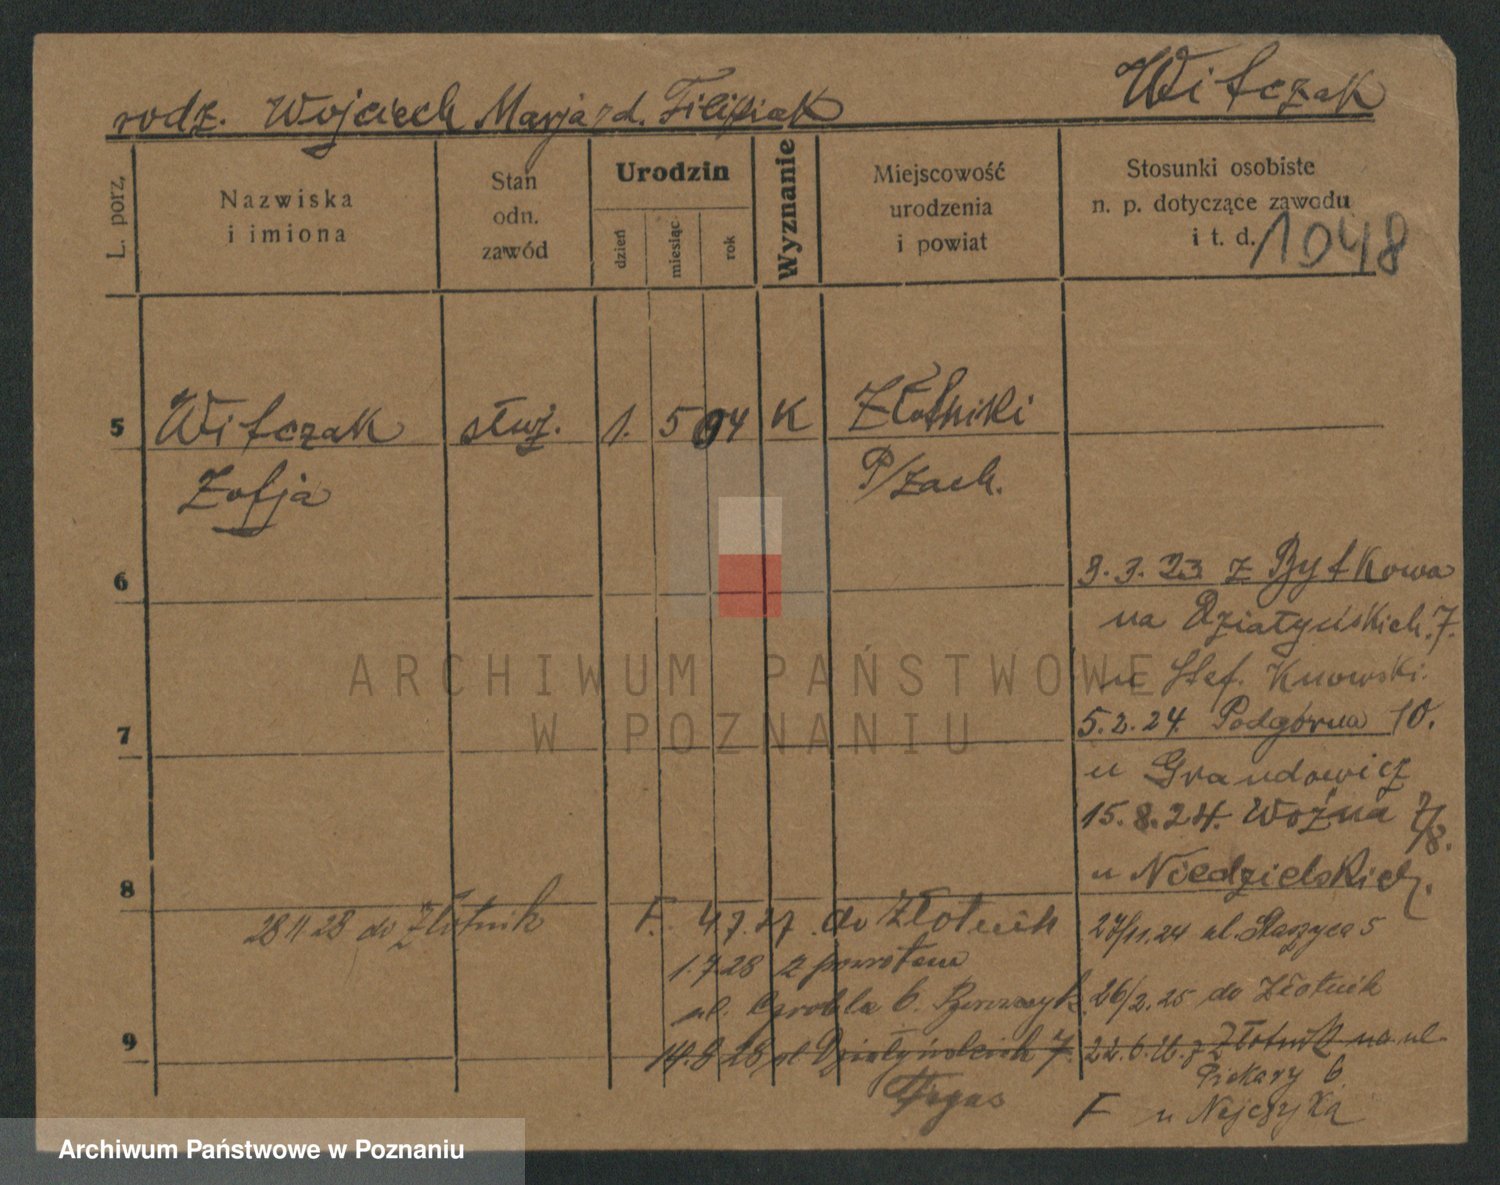 Witczak
rodz. Wojciech Marja zd. Filipiak
L. porz.
Nazwiska
i imiona
Stan
odn.
zawód
Urodzin
dzień
miesiąc
rok
Wyznanie
Miejscowość
urodzenia
i powiat
Stosunki osobiste
n. p. dotyczące zawodu
i t. d.
1048
5 Witczak służ. 1. 5 04 K Złotniki
Zofja P/zach.
6
3.3.23 z Bytkowa
na Działyńskich 7.
u Stef. Knowski.
7
5.2.24 Podgórna 10.
u Grandowicz
15.8.24. Woźna 7/8.
8
u Niedzielskich.
28 11 28 do Złotnik
F. 4.7.27. do Złotnik
27/11.24 ul. Staszyca 5
1.7.28 z powrotem
ul. Grobla 6.
26/2.25 do Złotnik
9
14.8 28 ul Działyńskich 7.
22.6.26. z Złotnik na ul
Piekary 6
F u Nejczyka
ARCHIWUM PAŃSTWOWE
W POZNANIU
Archiwum Państwowe w Poznaniu